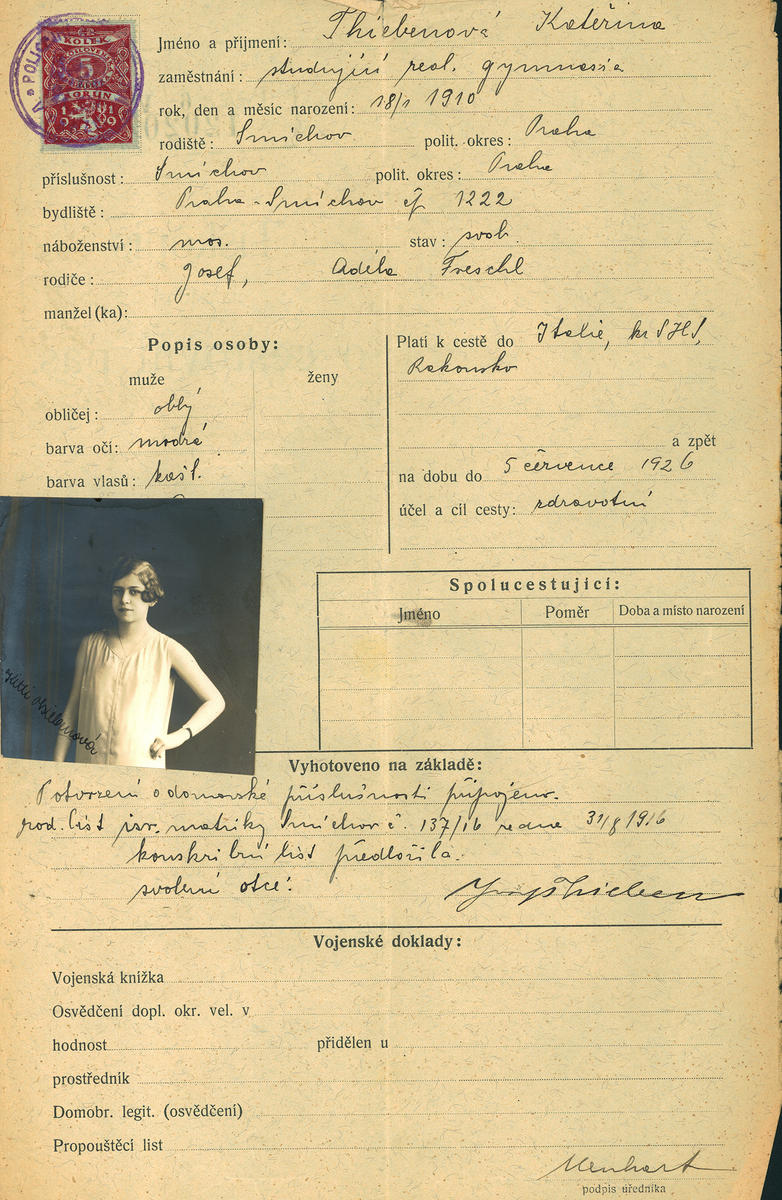 KOLEK
5
KORUN
1919
POLIC
Jméno a příjmení: Thiebenová Kateřina
zaměstnání: studující real. gymnasia
rok, den a měsíc narození: 18/1 1910
rodiště: Smíchov polit. okres: Praha
příslušnost: Smíchov polit. okres: Praha
bydliště: Praha-Smíchov čp 1222
náboženství: mos. stav: svob.
rodiče: Josef, Adéla Freschl
manžel(ka):
Popis osoby:
muže ženy
obličej: oblý
barva očí: modré
barva vlasů: kašt.
Platí k cestě do Italie, kr SHS,
Rakousko
a zpět
na dobu do 5 července 1926
účel a cíl cesty: zdravotní
Spolucestující:
Jméno Poměr Doba a místo narození
Thiebenová
Vyhotoveno na základě:
Potvrzení o domovské příslušnosti připojeno.
rod. list isr. matriky Smíchov č. 137/16 ze dne 31/8 1916
konskribní list předložila.
svolení otce: Thieben
Vojenské doklady:
Vojenská knížka
Osvědčení dopl. okr. vel. v
hodnost přidělen u
prostředník
Domobr. legit. (osvědčení)
Propouštěcí list
Menhart
podpis úředníka